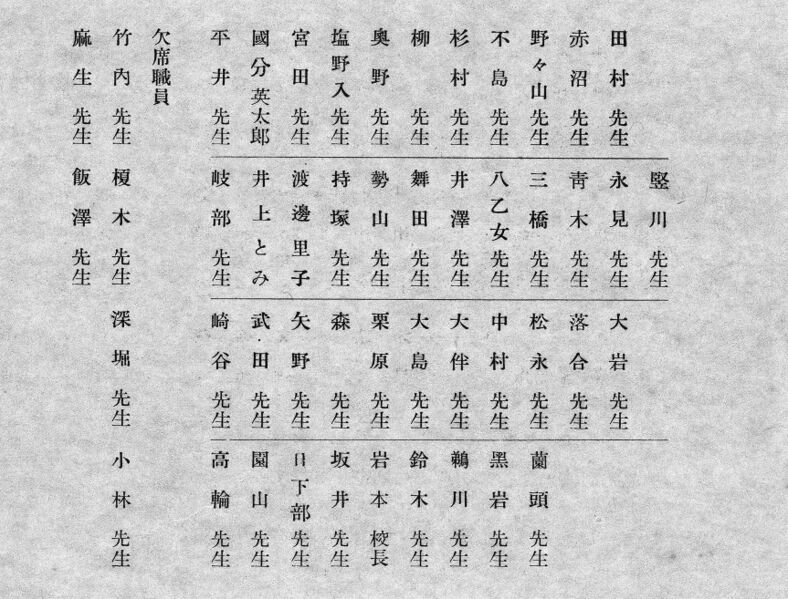 田村先生
赤沼先生
野々山先生
不島先生
杉村先生
柳先生
奥野先生
塩野入先生
宮田先生
國分英太郎
平井先生
竪川先生
永見先生
靑木先生
三橋先生
八乙女先生
井澤先生
舞田先生
勢山先生
持塚先生
渡邊里子
井上とみ
岐部先生
大岩先生
落合先生
松永先生
中村先生
大伴先生
大島先生
栗原先生
森先生
矢野先生
武田先生
崎谷先生
薗頭先生
黑岩先生
鵜川先生
鈴木先生
岩本校長
坂井先生
日下部先生
園山先生
高輪先生
欠席職員
竹内先生 榎木先生 深堀先生 小林先生
麻生先生 飯澤先生